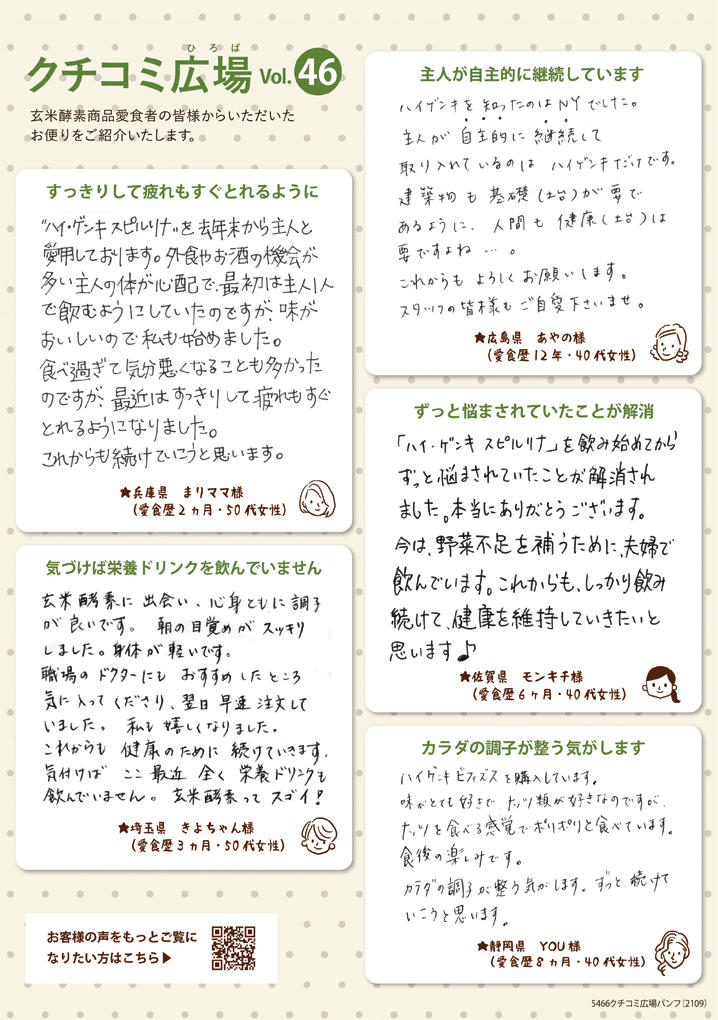 ひろば
クチコミ広場 Vol.46
玄米酵素商品愛食者の皆様からいただいた
お便りをご紹介いたします。
すっきりして疲れもすぐとれるように
"ハイ・ゲンキ スピルリナ"を去年末から主人と
愛用しております。外食やお酒の機会が
多い主人の体が心配で、最初は主人1人
で飲むようにしていたのですが、味が
おいしいので私も始めました。
食べ過ぎて気分悪くなることも多かった
のですが、最近はすっきりして疲れもすぐ
とれるようになりました。
これからも続けていこうと思います。
★兵庫県 まりママ様
(愛食歴2カ月・50代女性)
気づけば栄養ドリンクを飲んでいません
玄米酵素に出会い、心身ともに調子
が良いです。 朝の目覚めがスッキリ
しました。身体が軽いです。
職場のドクターにも おすすめしたところ
気に入ってくださり、翌日早速注文して
いました。 私も嬉しくなりました。
これからも 健康のために 続けていきます。
気付けば ここ最近 全く 栄養ドリンクも
飲んでいません。玄米酵素って スゴイ!
★埼玉県 きよちゃん様
(愛食歴3カ月・50代女性)
お客様の声をもっとご覧に
なりたい方はこちら▶
主人が自主的に継続しています
ハイゲンキを知ったのはNYでした。
主人が自主的に継続して
取り入れているのは ハイゲンキだけです。
建築物も 基礎(土台)が要で
あるように、人間も 健康(土台)は
要ですよね…。
これからも よろしくお願いします。
スタッフの皆様もご自愛下さいませ。
★広島県 あやの様
(愛食歴12年・40代女性)
ずっと悩まされていたことが解消
「ハイ・ゲンキ スピルリナ」を飲み始めてから
ずっと悩まされていたことが解消され
ました。本当にありがとうございます。
今は、野菜不足を補うために、夫婦で
飲んでいます。これからも、しっかり飲み
続けて、健康を維持していきたいと
思います♪
★佐賀県 モンキチ様
(愛食歴6ヶ月・40代女性)
カラダの調子が整う気がします
ハイゲンキビフィズスを購入しています。
味がとても好きで ナッツ類が好きなのですが、
ナッツを食べる感覚でポリポリと食べています。
食後の楽しみです。
カラダの調子が整う気がします。ずっと続けて
いこうと思います。
★静岡県 YOU様
(愛食歴8カ月・40代女性)
5466クチコミ広場パンフ(2109)